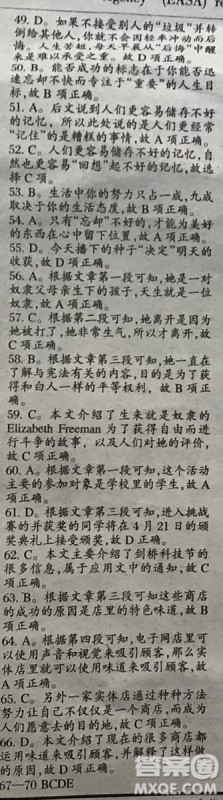 (EASA)
49. D。如果不接受别人的“垃圾”并转
倒给其他人,你就不会因轻率冲动而后
悔。人生苦短,每天早晨从“后悔”中醒
来是难以承受之重。故 D 项正确。
50. B。能否成功的标志在于你能否迅
速忘却不快而专注于“重要”的人生目
标,故 B 项正确。
51. A。后文说到人们更容易储存不好
的记忆,所以此处说的是人们更经常
“记住”的是糟糕的事情,故 A 项正确。
52. C。人们更容易储存不好的记忆,自
然也更容易“回想”起不好的记忆,故选
择 C 项。
53. B。生活中你的努力只占一成,九成
取决于你的生活态度,故 B 项正确。
54. A。只有“忘却”不好的,才能为美好
的东西在心中留下位置,故 A 项正确。
55. D。今天播下的种子“决定”明天的
收获,故 D 项正确。
56. A。根据文章第一段可知,她是一对
奴隶父母亲生下的孩子,天生就是一位
奴隶,故 A 项正确。
57. C。根据第二段可知,她离开是因为
她被打了,她非常生气,所以才离开,故
C 项正确。
58. B。根据文章第三段可知,她一直在
了解与宪法有关的内容,目的是为了获
得和白人一样的平等权利, 故 B 项正
确。
59. C。本文介绍了生来就是奴隶的
Elizabeth Freeman 为了获得自由而进
行斗争的故事, 以及人们对她的评价,
故 C 项正确。
60. A。根据文章第一段可知,这个活动
主要的参加对象是学校里的学生,故 A
项正确。
61. D。根据文章第三段可知,进入挑战
赛的并获奖的同学将在 4 月 21 日的颁
奖典礼上接受颁奖,故 D 正确。
62. C。本文主要介绍了剑桥科技节的
很多信息,属于应用文中的通知,故 C
项正确。
63. B。根据文章第三段可知这些商店
的成功的原因是店里的特色味道,故 B
项正确。
64. A。根据第四段可知,电子网店里可
以使用声音和视觉来吸引顾客,那么实
体店里就可以使用味道来吸引顾客,故
A 项正确。
65. C。另外一家实体店通过种种方法
努力让自己不仅仅是一个商店,而成为
人们愿意去的目的地,故 C 项正确。
66. D。本文介绍了现在的很多商店都
运用味道来吸引顾客,并解释了这样做
的原因,故 D 项正确。
67—70 BCDE